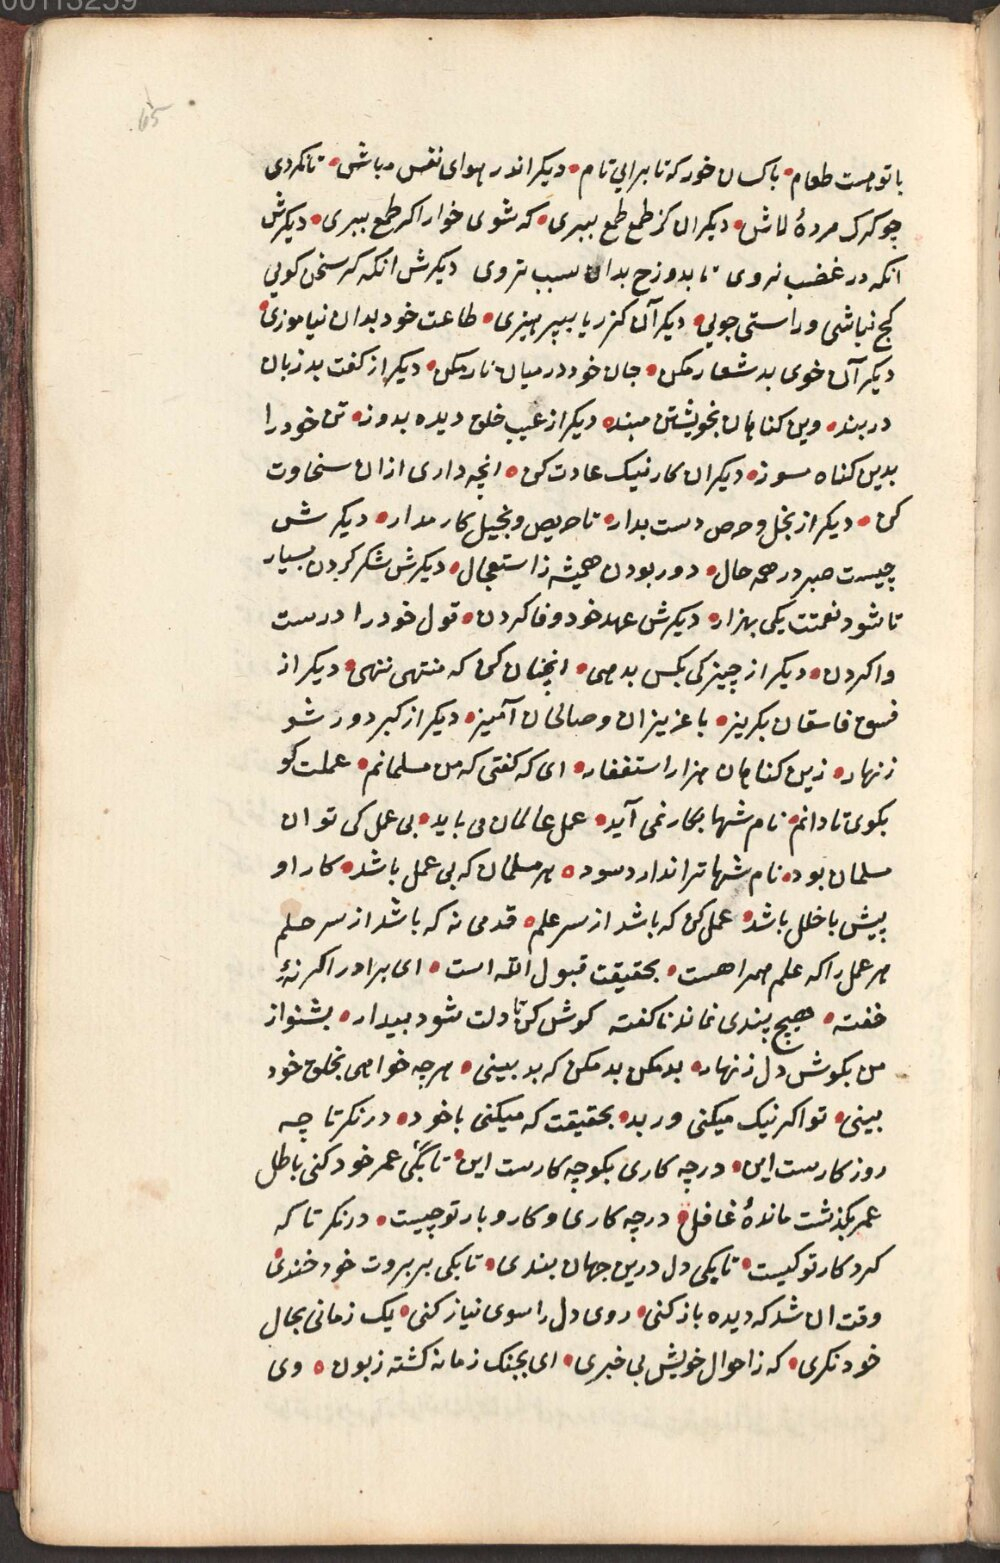 00113259
65
با تو هست طعام • با کسان خور که تا برایی تام • دیکر اندر هوای نفس مباش • تا نکردی
چو کرک مردهٔ لاش • دیکر ان کز طمع طمع ببری • که شوی خوار اکر طمع ببری • دیکرش
انکه در غضب نروی تا بدوزخ بدان سبب نروی دیکرش انکه کر سخن کویی
کج نباشی و راستی جویی • دیکر آن کز ریا بپرهیزی • طاعت خود بدان نیاموزی •
دیکر آن خوی بد شعار مکن • جان خود در میان نار مکن • دیکر از کفت بد زبان
در بند • وین کناهان بخویشتن مبند • دیکر از عیب خلق دیده بدوز • تن خود را
بدین کناه مسوز • دیکر ان کار نیک عادت کن • انچه داری ازان سخاوت
کن • دیکر از بخل و حرص دست بدار • تا حریص و بخیل کار مدار • دیکرش
چیست صبر در همه حال • دور بودن همیشه ز استعجال • دیکرش شکر کردن بسیار
تا شود نعمتت یکی بهزار • دیکرش عهد خود وفا کردن • قول خود را درست
وا کردن • دیکر از چیزکی بکس بدهی • انچنان کن که منتهی ننهی • دیکر از
فسق فاسقان بکریز • با عزیزان و صالحان آمیز • دیکر از کبر دور شو
زنهار • زین کناهان هزار استغفار • ای که کفتی که من مسلمانم • عملت کو
بکوی تا دانم • نام شهها بکار نمی آید • عمل عالمان می باید • بی عمل کی توان
مسلمان بود • نام شهها ترا ندارد سود • هر مسلمان که بی عمل باشد • کار او
پیش با خلل باشد • عمل کن که باشد از سر علم • قدمی نه که باشد از سر حلم
هر عمل را که علم همراهست • بحقیقت قبول الله است • ای برادر اکر نهٔ
خفته • هیچ پندی نماند ناکفته کوش کن تا دلت شود بیدار • بشنو از
من بکوش دل زنهار • بد مکن بد مکن که بد بینی • هرچه خواهی بخلق خود
بینی • تو اکر نیک میکنی ور بد • بحقیقت که میکنی با خود • در نکر تا چه
روزکارست این • در چه کاری بکو چه کارست این • تا بکی عمر خود کنی باطل
عمر بکذشت ماندهٔ غافل • در چه کاری و کار و بار تو چیست • در نکر تا که
کرد کار تو کیست • تا بکی دل درین جهان بندی • تا بکی بر بروت خود خندی •
وقت ان شد که دیده باز کنی • روی دل را سوی نیاز کنی • یک زمانی بحال
خود نکری • که ز احوال خویش بی خبری • ای بجنک زمانه کشته زبون • وی